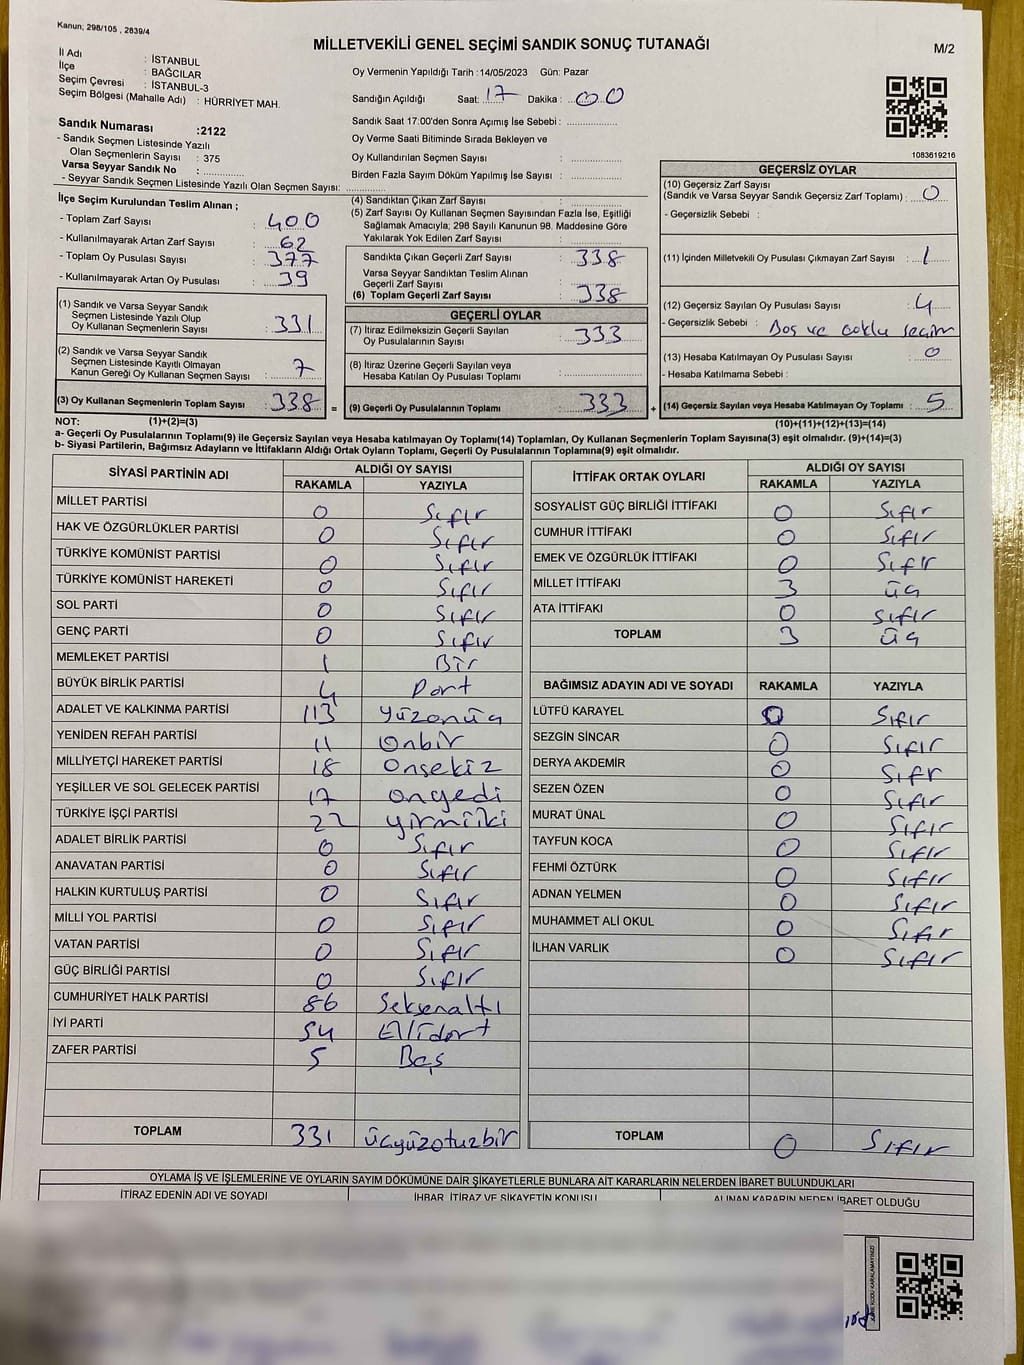 Kanun, 298/105 , 2839/4
MİLLETVEKİLİ GENEL SEÇİMİ SANDIK SONUÇ TUTANAĞI
M/2
İl Adı : İSTANBUL
İlçe : BAĞCILAR
Seçim Çevresi : İSTANBUL-3
Seçim Bölgesi (Mahalle Adı) : HÜRRİYET MAH.
Oy Vermenin Yapıldığı Tarih :14/05/2023 Gün: Pazar
Sandığın Açıldığı Saat: 17 Dakika : 00
Sandık Saat 17:00'den Sonra Açılmış İse Sebebi :
Oy Verme Saati Bitiminde Sırada Bekleyen ve
Oy Kullandırılan Seçmen Sayısı :
Birden Fazla Sayım Döküm Yapılmış İse Sayısı :
Sandık Numarası :2122
- Sandık Seçmen Listesinde Yazılı
Olan Seçmenlerin Sayısı : 375
Varsa Seyyar Sandık No :
- Seyyar Sandık Seçmen Listesinde Yazılı Olan Seçmen Sayısı:
1083619216
İlçe Seçim Kurulundan Teslim Alınan ;
- Toplam Zarf Sayısı : 400
- Kullanılmayarak Artan Zarf Sayısı : 62
- Toplam Oy Pusulası Sayısı : 377
- Kullanılmayarak Artan Oy Pusulası : 39
(1) Sandık ve Varsa Seyyar Sandık
Seçmen Listesinde Yazılı Olup
Oy Kullanan Seçmenlerin Sayısı : 331
(2) Sandık ve Varsa Seyyar Sandık
Seçmen Listesinde Kayıtlı Olmayan
Kanun Gereği Oy Kullanan Seçmen Sayısı : 7
(3) Oy Kullanan Seçmenlerin Toplam Sayısı : 338 =
(4) Sandıktan Çıkan Zarf Sayısı :
(5) Zarf Sayısı Oy Kullanan Seçmen Sayısından Fazla İse, Eşitliği
Sağlamak Amacıyla; 298 Sayılı Kanunun 98. Maddesine Göre
Yakılarak Yok Edilen Zarf Sayısı :
Sandıkta Çıkan Geçerli Zarf Sayısı : 338
Varsa Seyyar Sandıktan Teslim Alınan
Geçerli Zarf Sayısı :
(6) Toplam Geçerli Zarf Sayısı : 338
GEÇERLİ OYLAR
(7) İtiraz Edilmeksizin Geçerli Sayılan
Oy Pusulalarının Sayısı : 333
(8) İtiraz Üzerine Geçerli Sayılan veya
Hesaba Katılan Oy Pusulası Toplamı :
(9) Geçerli Oy Pusulalarının Toplamı : 333 +
GEÇERSİZ OYLAR
(10) Geçersiz Zarf Sayısı
(Sandık ve Varsa Seyyar Sandık Geçersiz Zarf Toplamı) : 0
- Geçersizlik Sebebi :
(11) İçinden Milletvekili Oy Pusulası Çıkmayan Zarf Sayısı : 1
(12) Geçersiz Sayılan Oy Pusulası Sayısı : 4
- Geçersizlik Sebebi : Boş ve çoklu seçim
(13) Hesaba Katılmayan Oy Pusulası Sayısı : 0
- Hesaba Katılmama Sebebi :
(14) Geçersiz Sayılan veya Hesaba Katılmayan Oy Toplamı : 5
NOT: (1)+(2)=(3) (10)+(11)+(12)+(13)=(14)
a- Geçerli Oy Pusulalarının Toplamı(9) ile Geçersiz Sayılan veya Hesaba katılmayan Oy Toplamı(14) Toplamları, Oy Kullanan Seçmenlerin Toplam Sayısına(3) eşit olmalıdır. (9)+(14)=(3)
b- Siyasi Partilerin, Bağımsız Adayların ve İttifakların Aldığı Ortak Oyların Toplamı, Geçerli Oy Pusulalarının Toplamına(9) eşit olmalıdır.
SİYASİ PARTİNİN ADI ALDIĞI OY SAYISI
RAKAMLA YAZIYLA
MİLLET PARTİSİ 0 Sıfır
HAK VE ÖZGÜRLÜKLER PARTİSİ 0 Sıfır
TÜRKİYE KOMÜNİST PARTİSİ 0 Sıfır
TÜRKİYE KOMÜNİST HAREKETİ 0 Sıfır
SOL PARTİ 0 Sıfır
GENÇ PARTİ 0 Sıfır
MEMLEKET PARTİSİ 1 Bir
BÜYÜK BİRLİK PARTİSİ 4 Dört
ADALET VE KALKINMA PARTİSİ 113 yüzonüç
YENİDEN REFAH PARTİSİ 11 Onbir
MİLLİYETÇİ HAREKET PARTİSİ 18 Onsekiz
YEŞİLLER VE SOL GELECEK PARTİSİ 17 onyedi
TÜRKİYE İŞÇİ PARTİSİ 22 yirmiiki
ADALET BİRLİK PARTİSİ 0 Sıfır
ANAVATAN PARTİSİ 0 Sıfır
HALKIN KURTULUŞ PARTİSİ 0 Sıfır
MİLLİ YOL PARTİSİ 0 Sıfır
VATAN PARTİSİ 0 Sıfır
GÜÇ BİRLİĞİ PARTİSİ 0 Sıfır
CUMHURİYET HALK PARTİSİ 86 Seksenaltı
İYİ PARTİ 54 Ellidört
ZAFER PARTİSİ 5 Beş
TOPLAM 331 üçyüzotuzbir
İTTİFAK ORTAK OYLARI ALDIĞI OY SAYISI
RAKAMLA YAZIYLA
SOSYALİST GÜÇ BİRLİĞİ İTTİFAKI 0 Sıfır
CUMHUR İTTİFAKI 0 Sıfır
EMEK VE ÖZGÜRLÜK İTTİFAKI 0 Sıfır
MİLLET İTTİFAKI 3 üç
ATA İTTİFAKI 0 sıfır
TOPLAM 3 üç
BAĞIMSIZ ADAYIN ADI VE SOYADI RAKAMLA YAZIYLA
LÜTFÜ KARAYEL 0 Sıfır
SEZGİN SİNCAR 0 Sıfır
DERYA AKDEMİR 0 Sıfır
SEZEN ÖZEN 0 Sıfır
MURAT ÜNAL 0 Sıfır
TAYFUN KOCA 0 Sıfır
FEHMİ ÖZTÜRK 0 Sıfır
ADNAN YELMEN 0 Sıfır
MUHAMMET ALİ OKUL 0 Sıfır
İLHAN VARLIK 0 Sıfır
TOPLAM 0 Sıfır
OYLAMA İŞ VE İŞLEMLERİNE VE OYLARIN SAYIM DÖKÜMÜNE DAİR ŞİKAYETLERLE BUNLARA AİT KARARLARIN NELERDEN İBARET BULUNDUKLARI
İTİRAZ EDENİN ADI VE SOYADI İHBAR, İTİRAZ VE ŞİKAYETİN KONUSU ALINAN KARARIN NEDEN İBARET OLDUĞU